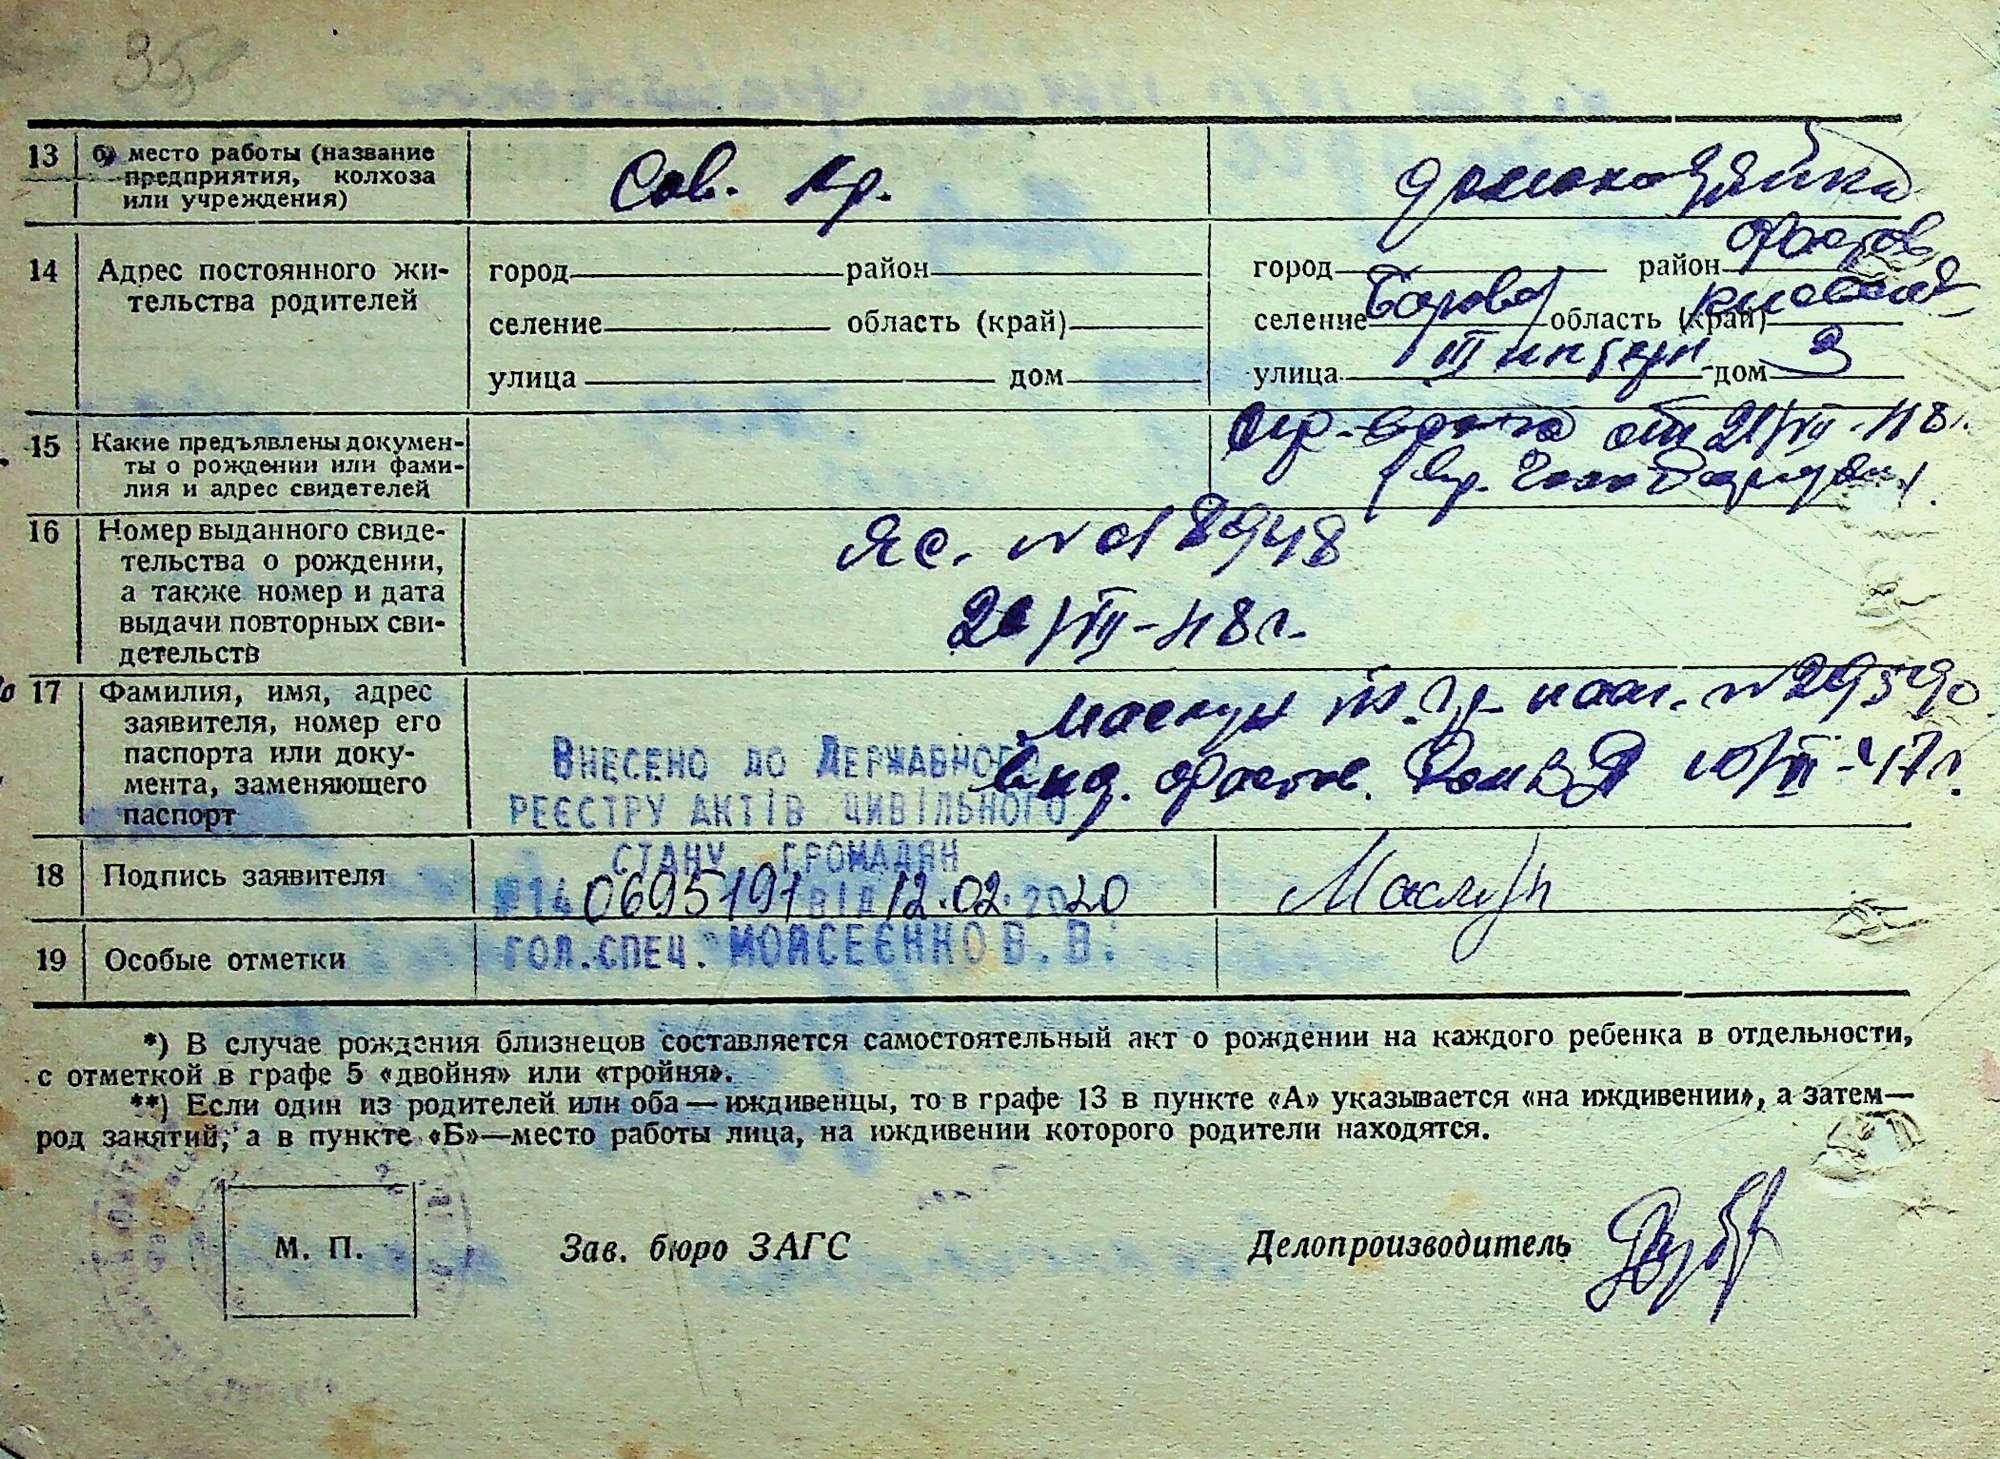 35
13 б) место работы (название предприятия, колхоза или учреждения) Сов. Ар. домохозяйка
14 Адрес постоянного жи-
тельства родителей
город район
селение область (край)
улица дом
город район Фастов
селение Борова область (край) Киевская
улица III дом 3
15 Какие предъявлены докумен-
ты о рождении или фами-
лия и адрес свидетелей
от 21/VII-48г.
16 Номер выданного свиде-
тельства о рождении,
а также номер и дата
выдачи повторных сви-
детельств
ЯС. № 018948
21/VII-48г.
17 Фамилия, имя, адрес
заявителя, номер его
паспорта или доку-
мента, заменяющего
паспорт
№
выд. Фастов. 47г.
Внесено до Державного
реєстру актів цивільного
стану громадян
№ 140695191 від 12.02.2020
гол.спец. Мойсеєнко В. В.
18 Подпись заявителя
19 Особые отметки
*) В случае рождения близнецов составляется самостоятельный акт о рождении на каждого ребенка в отдельности,
с отметкой в графе 5 «двойня» или «тройня».
**) Если один из родителей или оба — иждивенцы, то в графе 13 в пункте «А» указывается «на иждивении», а затем —
род занятий, а в пункте «Б» — место работы лица, на иждивении которого родители находятся.
М. П. Зав. бюро ЗАГС Делопроизводитель